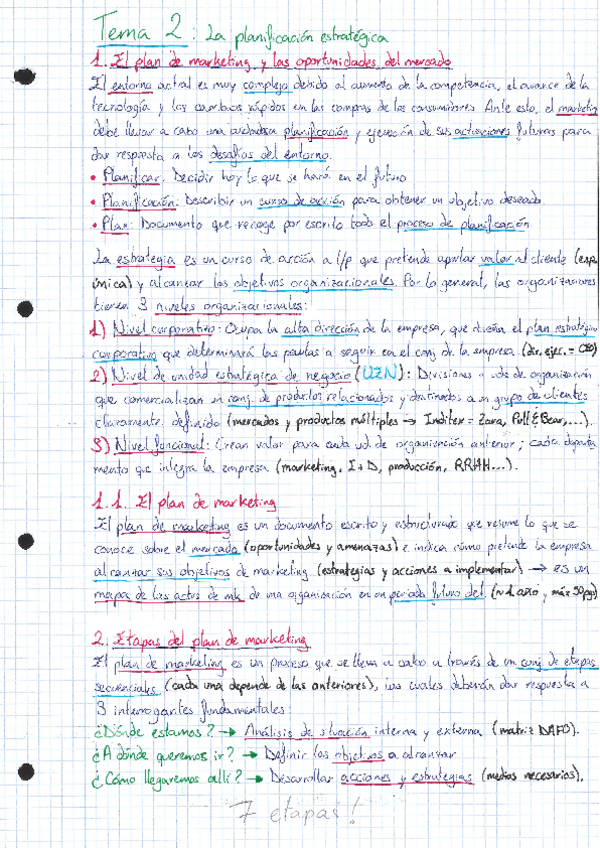 Tema 2: La planificación estratégica
1. El plan de marketing y las oportunidades del mercado
El entorno actual es muy complejo debido al aumento de la competencia, el avance de la
tecnología y los cambios rápidos en las compras de los consumidores. Ante esto, el marketing
debe llevar a cabo una cuidadosa planificación y ejecución de sus actuaciones futuras para
dar respuesta a los desafíos del entorno.
• Planificar: Decidir hoy lo que se hará en el futuro
• Planificación: Describir un curso de acción para obtener un objetivo deseado
• Plan: Documento que recoge por escrito todo el proceso de planificación
La estrategia es un curso de acción a l/p que pretende aportar valor al cliente (exp.
única) y alcanzar los objetivos organizacionales. Por lo general, las organizaciones
tienen 3 niveles organizacionales:
1) Nivel corporativo: Ocupa la alta dirección de la empresa, que diseña el plan estratégico
corporativo que determinará las pautas a seguir en el conj. de la empresa. (dir. ejec. = CEO)
2) Nivel de unidad estratégica de negocio (UEN): Divisiones o uds de organización
que comercializan un conj. de productos relacionados y destinados a un grupo de clientes
claramente definido (mercados y productos múltiples → Inditex = Zara, Pull&Bear,...).
3) Nivel funcional: Crean valor para cada ud. de organización anterior; cada departa
mento que integra la empresa (marketing, I+D, producción, RRHH...).
1.1. El plan de marketing
El plan de marketing es un documento escrito y estructurado que resume lo que se
conoce sobre el mercado (oportunidades y amenazas) e indica cómo pretende la empresa
alcanzar sus objetivos de marketing (estrategias y acciones a implementar) → es un
mapa de las actvs de mk de una organización en un periodo futuro det. (~1 año, máx 50pgs)
2. Etapas del plan de marketing
El plan de marketing es un proceso que se lleva a cabo a través de un conj. de etapas
secuenciales (cada una depende de las anteriores), las cuales deberán dar respuesta a
3 interrogantes fundamentales:
¿Dónde estamos? → Análisis de situación interna y externa (matriz DAFO).
¿A dónde queremos ir? → Definir los objetivos a alcanzar
¿Cómo llegaremos allí? → Desarrollar acciones y estrategias (medios necesarios).
7 etapas!